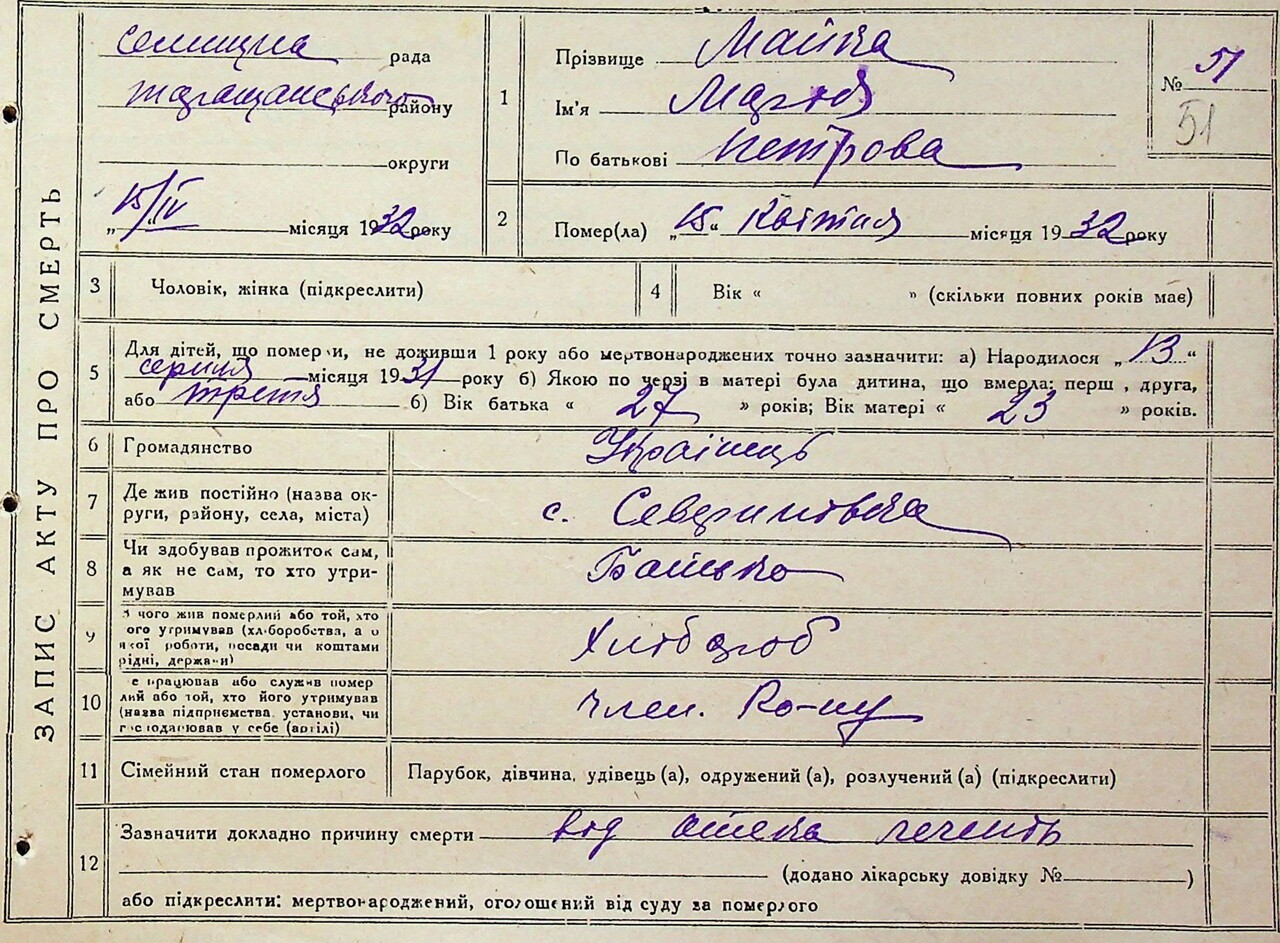 ЗАПИС АКТУ ПРО СМЕРТЬ
рада
району
округи
„15/IV місяця 1932 року
1
Прізвище Майка
Ім'я Марія
По батькові Петрова
№ 51
51
2
Помер(ла) „15" Квітня місяця 1932 року
3
Чоловік, жінка (підкреслити)
4
Вік « » (скільки повних років має)
5
Для дітей, що померли, не доживши 1 року або мертвонароджених точно зазначити: а) Народилося „13"
серпня місяця 1931 року б) Якою по черзі в матері була дитина, що вмерла: перш , друга,
або третя б) Вік батька « 27 » років; Вік матері « 23 » років.
6
Громадянство
Українець
7
Де жив постійно (назва ок-
руги, району, села, міста)
с. Севериновка
8
Чи здобував прожиток сам,
а як не сам, то хто утри-
мував
Батько
9
з чого жив померлий або той, хто
ого утримував (хліборобства, а о
якої роботи, посади чи коштами
рідні, держави)
Хлібороб
10
е працював або служив помер
лий або той, хто його утримував
(назва підприємства, установи, чи
господарював у себе (артілі)
член.
11
Сімейний стан померлого
Парубок, дівчина, удівець (а), одружений (а), розлучений (а) (підкреслити)
12
Зазначити докладно причину смерти від
(додано лікарську довідку № )
або підкреслити: мертвонароджений, оголошений від суду за померлого